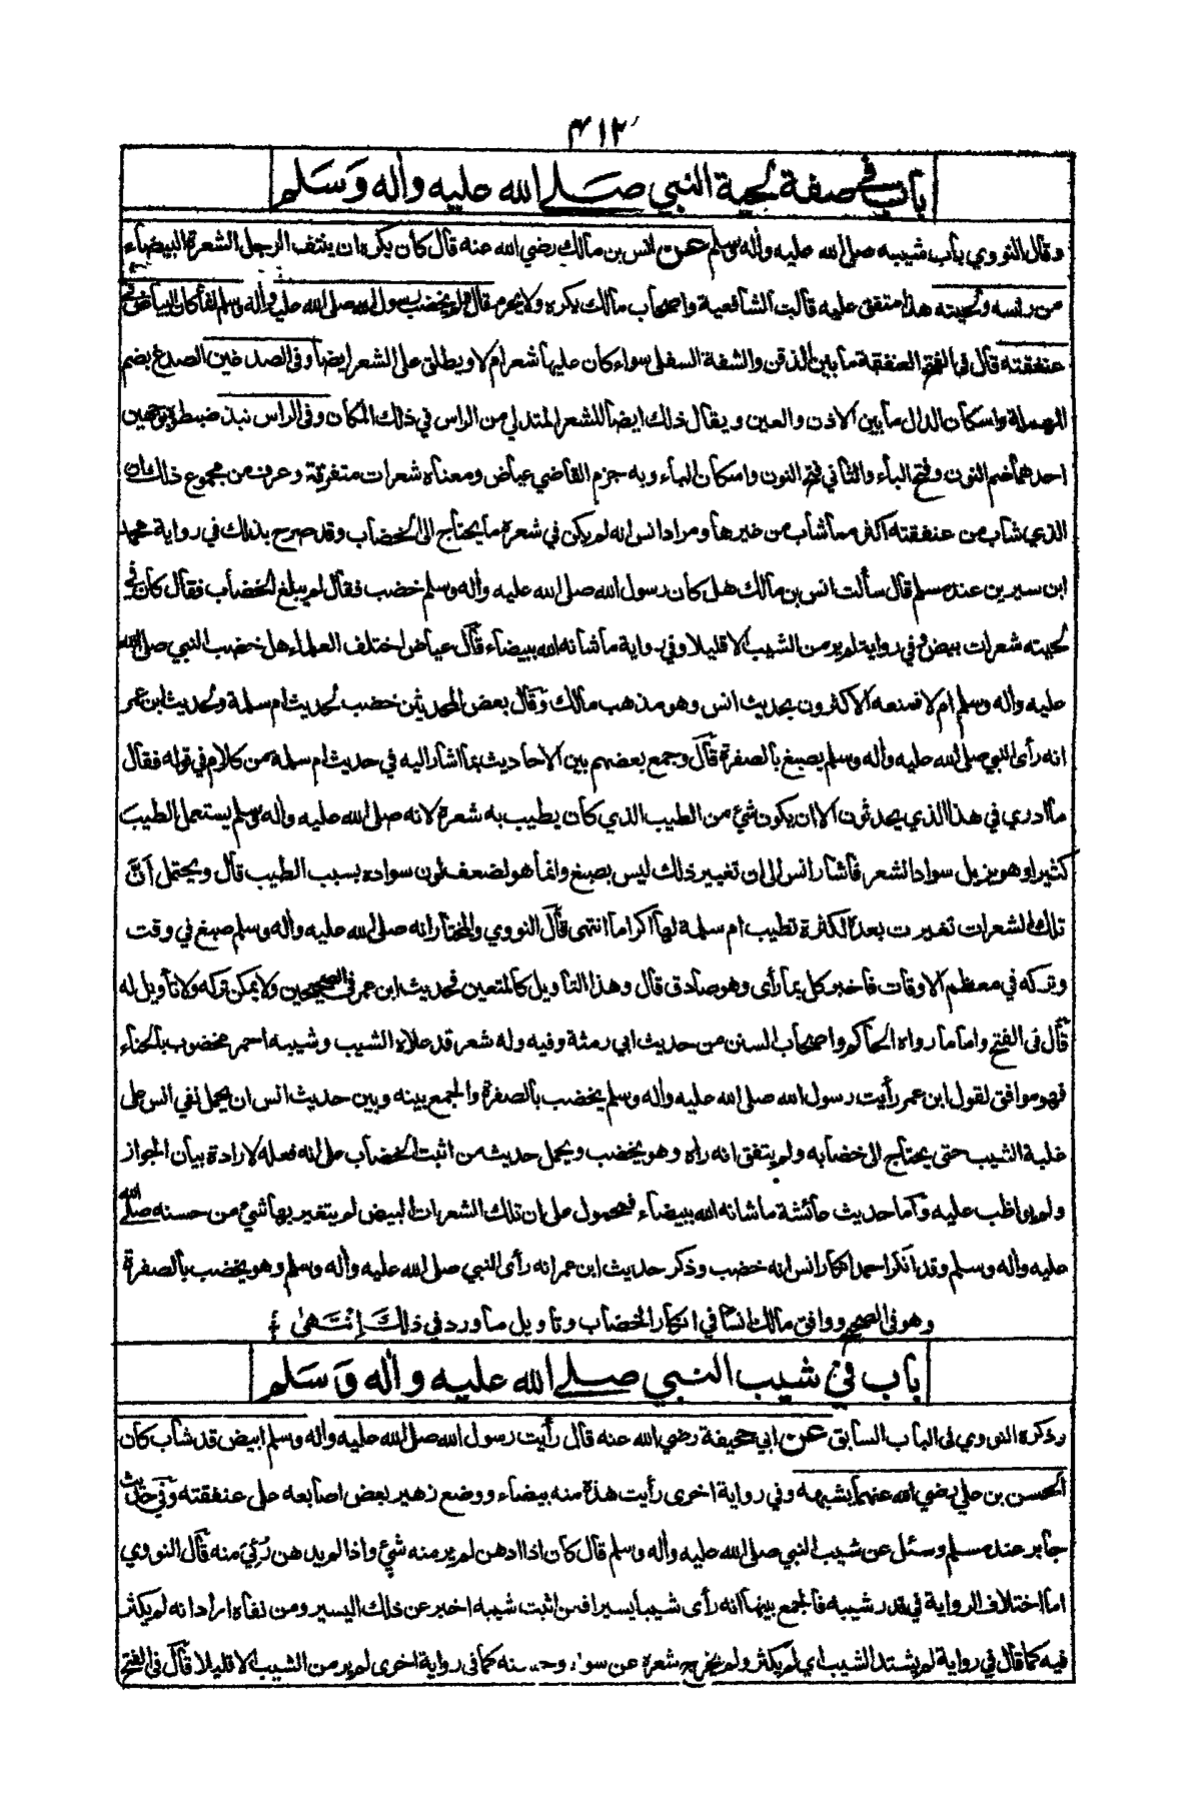 ٤١٢
باب في صفة لحية النبي صلى الله عليه واله وسلم
وقال النووي باب شيبه صلى الله عليه واله وسلم عن انس بن مالك رضي الله عنه قال كان يكره ان ينتف الرجل الشعرة البيضاء
من راسه ولحيته هذا متفق عليه قالت الشافعية واصحاب مالك يكره ولا يحرم قال ولم يخضب رسول الله صلى الله عليه واله وسلم انما كان البياض في
عنفقته قال في الفتح العنفقة ما بين الذقن والشفة السفلى سواء كان عليها شعرام لا ويطلق على الشعر ايضا وفى الصدغين الصدغ بضم
المهملة واسكان الدال ما بين الاذن والعين ويقال ذلك ايضا للشعر المتدلي من الراس في ذلك المكان وفى الراس نبذ ضبطوه بوجهين
احدهما ضم النون وفتح الباء والثاني فتح النون واسكان الباء وبه جزم القاضي عياض ومعناه شعرات متفرقة وعرف من مجموع ذلك ان
الذي شاب من عنفقته اكثر مما شاب من غيرها ومراد انس انه لم يكن في شعره ما يحتاج الى الخضاب وقد صرح بذلك في رواية محمد
ابن سيرين عند مسلم قال سألت انس بن مالك هل كان رسول الله صلى الله عليه واله وسلم خضب فقال لم يبلغ الخضاب فقال كان في
لحيته شعرات بيض وفي رواية لم ير من الشيب الا قليلا وفي رواية ما شانه الله ببيضاء قال عياض اختلف العلماء هل خضب النبي صلى الله
عليه واله وسلم ام لا فمنعه الاكثرون بحديث انس وهو مذهب مالك وقال بعض المحدثين خضب لحديث ام سلمة ولحديث ابن عمر
انه رأى النبي صلى الله عليه واله وسلم يصبغ بالصفرة قال وجمع بعضهم بين الاحاديث بما اشار اليه في حديث ام سلمة من كلام في قوله فقال
ما ادري في هذا الذي يحدثون الا ان يكون شئ من الطيب الذي كان يطيب به شعره لانه صلى الله عليه واله وسلم يستعمل الطيب
كثيرا وهو يزيل سواد الشعر فاشار انس الى ان تغيير ذلك ليس بصبغ وانما هو لضعف لون سواده بسبب الطيب قال ويحتمل ان
تلك الشعرات تغيرت بعده لكثرة تطييب ام سلمة لها اكراما انتهى قال النووي والمختار انه صلى الله عليه واله وسلم صبغ في وقت
وتركه في معظم الاوقات فاخبر كل بما رأى وهو صادق قال وهذا التاويل كالمتعين فحديث ابن عمر في الصحيحين ولا يمكن تركه ولا تأويل له
قال فى الفتح واما ما رواه الحاكم واصحاب السنن من حديث ابي رمثة وفيه وله شعر قد علاه الشيب وشيبه احمر مخضوب بالحناء
فهو موافق لقول ابن عمر رأيت رسول الله صلى الله عليه واله وسلم يخضب بالصفرة والجمع بينه وبين حديث انس ان يحمل نفي انس على
غلبة الشيب حتى يحتاج الى خضابه ولم يتفق انه راه وهو يخضب ويحمل حديث من اثبت الخضاب على انه فعله لارادة بيان الجواز
ولم يواظب عليه واما حديث عائشة ما شانه الله ببيضاء فمحمول على ان تلك الشعرات البيض لم يتغير بها شئ من حسنه صلى الله
عليه واله وسلم وقد انكر احمد انكار انس انه خضب وذكر حديث ابن عمر انه رأى النبي صلى الله عليه واله وسلم وهو يخضب بالصفرة
وهو فى الصحيح ووافق مالك انسا في انكار الخضاب وتاويل ما ورد في ذلك انتهى
باب في شيب النبي صلى الله عليه واله وسلم
وذكره النووي فى الباب السابق عن ابي جحيفة رضي الله عنه قال رأيت رسول الله صلى الله عليه واله وسلم ابيض قد شاب كان
الحسن بن علي رضي الله عنهما يشبهه وفي رواية اخرى رأيت هذه منه بيضاء ووضع زهير بعض اصابعه على عنفقته وفي حديث
جابر عند مسلم وسئل عن شيب النبي صلى الله عليه واله وسلم قال كان اذا ادهن لم ير منه شئ واذا لم يدهن رُئِيَ منه قال النووي
اما اختلاف الرواية في قدر شيبه فالجمع بينها انه رأى شيبا يسيرا فمن اثبت شيبه اخبر عن ذلك اليسير ومن نفاه اراد انه لم يكثر
فيه كما قال في رواية لم يشتد الشيب اي لم يكثر ولم يخرج شعره عن سواده وحسنه كما فى رواية اخرى لم ير من الشيب الا قليلا قال فى الفتح